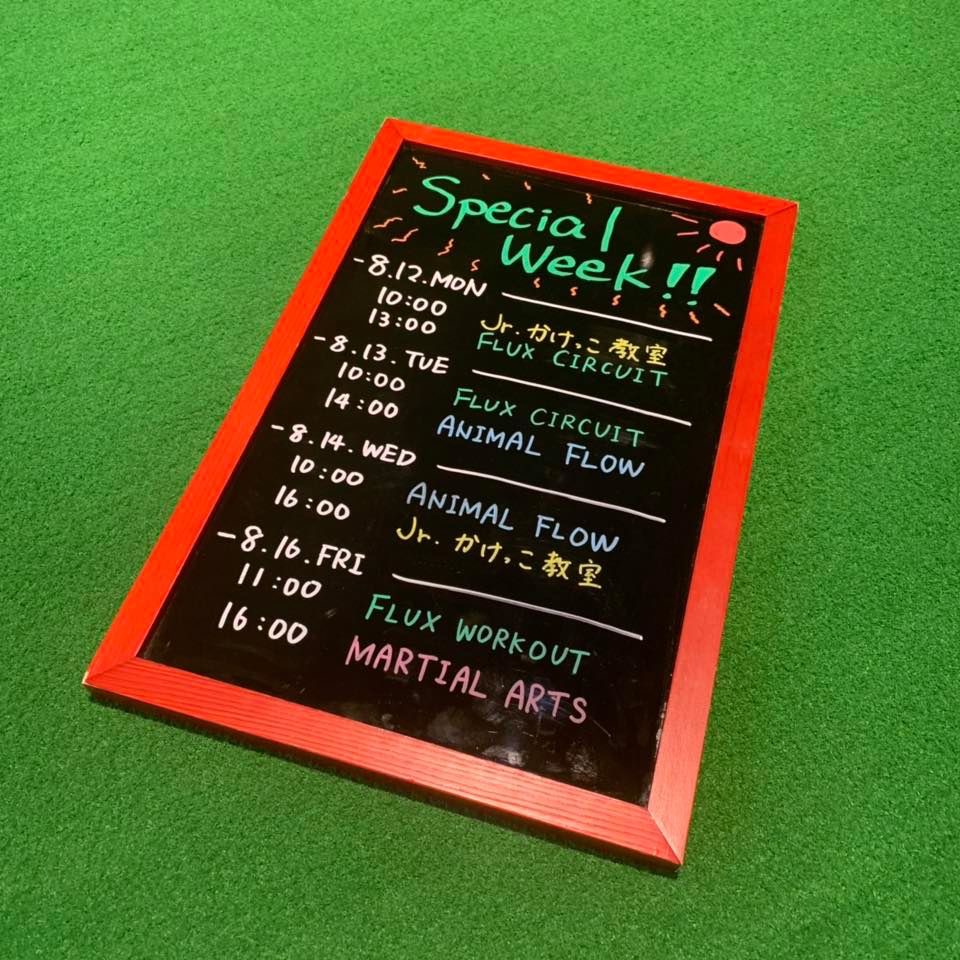 Special
Week!!
-8.12.MON
10:00 Jr.かけっこ教室
13:00 FLUX CIRCUIT
-8.13.TUE
10:00 FLUX CIRCUIT
14:00 ANIMAL FLOW
-8.14.WED
10:00 ANIMAL FLOW
16:00 Jr.かけっこ教室
-8.16.FRI
11:00 FLUX WORKOUT
16:00 MARTIAL ARTS